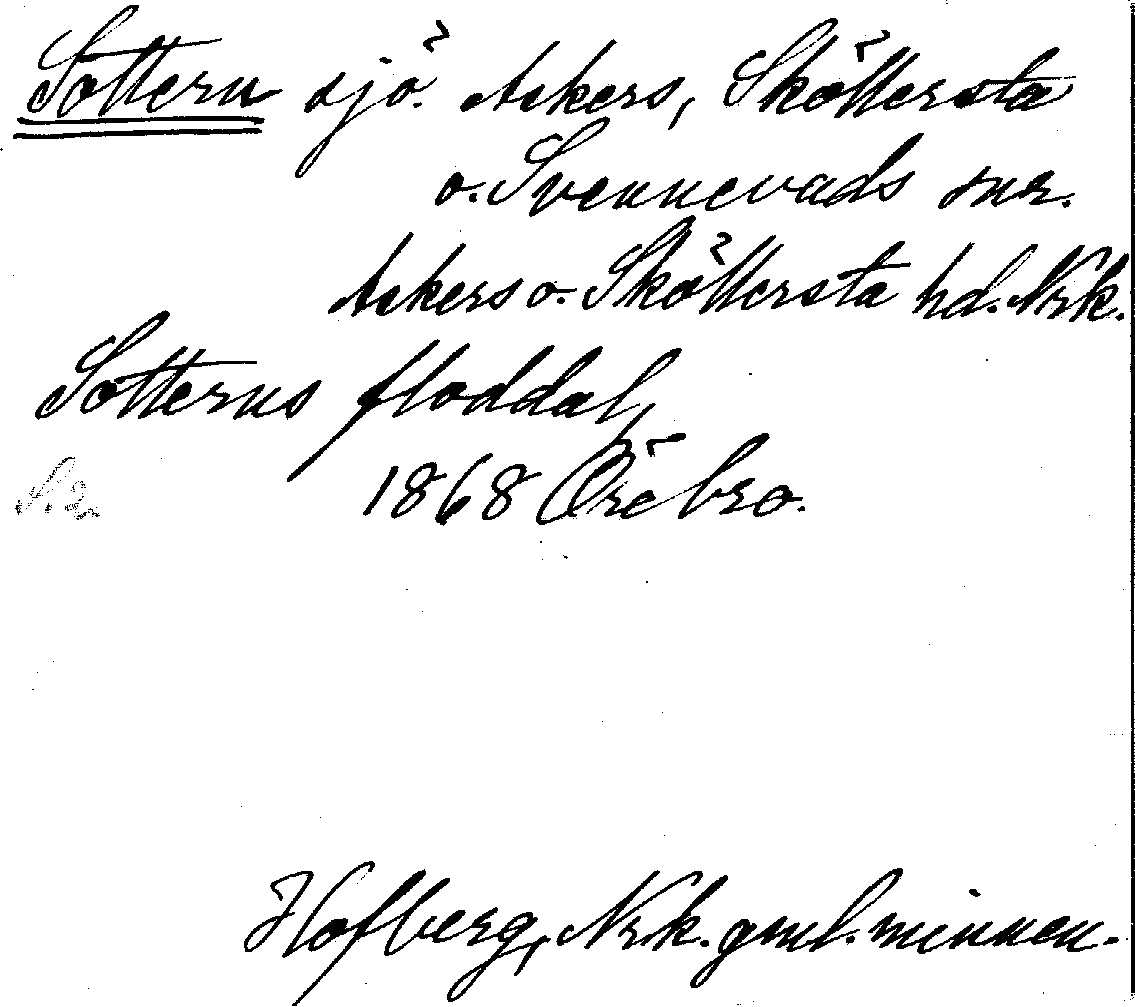 Sottern sjö. Askers, Sköllersta
o. Svennevads snr.
Askers o. Sköllersta hd. Nrk.
Sotterns floddal,
1868 Örebro.
Hofberg, Nrk. gml. minnen.